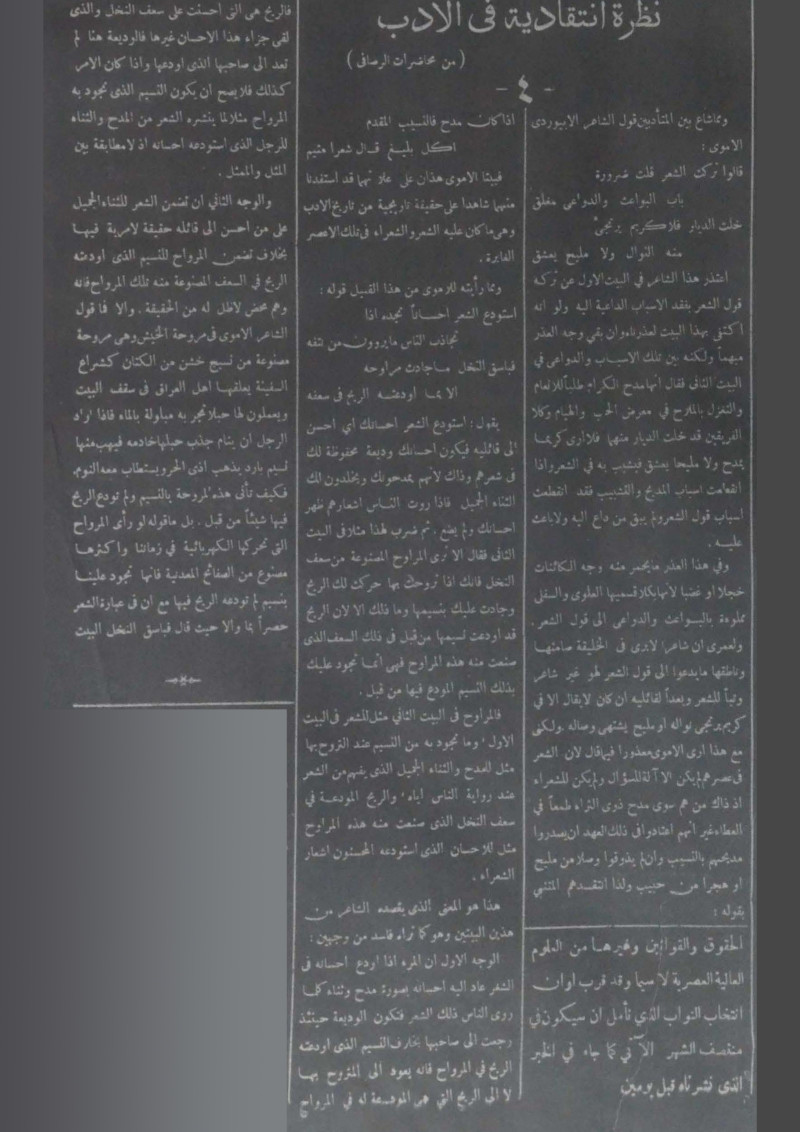 نظرة انتقادية فى الادب
( من محاضرات الرصافى )
- ٤ -
ومماشاع بين المتأدبين قول الشاعر الابيوردى
الاموى :
قالوا تركت الشعر قلت ضرورة
باب البواعث والدواعى مغلق
خلت الديار فلا كريم يرتجىُ
منه النوال ولا مليح يعشق
اعتذر هذا الشاعر فى البيت الاول عن تركه
قول الشعر بفقد الاسباب الداعية اليه ولو انه
اكتفى بهذا البيت لعذرناه وان بقى وجه العذر
مبهماً ولكنه بين تلك الاسباب والدواعى فى
البيت الثانى فقال انها مدح الكرام طلباً للانعام
والتغزل بالملاح في معرض الحب والهيام وكلا
الفريقين قد خلت الديار منهما فلاارى كريما
يمدح ولا مليحا يعشق فيشبب به فى الشعر واذا
انقطعت اسباب المديح والتشبيب فقد انقطعت
اسباب قول الشعر ولم يبق من داع اليه ولاباعث
عليه .
وفي هذا العذر مايحمر منه وجه الكائنات
خجلا او غضبا لانها بكلا قسميها العلوى والسفلى
مملوءة بالبواعث والدواعى الى قول الشعر .
ولعمرى ان شاعرا لايرى فى الخليقة صامتها
وناطقها مايدعوا الى قول الشعر لهو غير شاعر
وتباً للشعر وبعداً لقائليه ان كان لايقال الا في
كريم يرتجى نواله او مليح يشتهى وصاله .ولكنى
مع هذا ارى الاموى معذورا فيما قال لان الشعر
فى عصرهم لم يكن الا آلة للسؤال ولم يكن للشعراء
اذ ذاك من هم سوى مدح ذوى الثراء طمعاً في
العطاء غير انهم اعتادوا فى ذلك العهد ان يصدروا
مديحهم بالنسيب وان لم يذوقوا وصلا من مليح
او هجرا من حبيب ولذا انتقدهم المتنبي
بقوله :
الحقوق والقوانين وغيرها من العلوم
العالية العصرية لا سيما وقد قرب اوان
انتخاب النواب الذي نأمل ان سيكون في
منتصف الشهر الآتي كما جاء في الخبر
الذى نشرناه قبل يومين
اذا كان مدح فالنسيب المقدم
اكل بليغ قال شعرا متيم
فبيتا الاموى هذان على علاتهما قد استفدنا
منهما شاهدا على حقيقة تاريخية من تاريخ الادب
وهي ما كان عليه الشعر والشعراء فى تلك الاعصر
الغابرة .
ومما رأيته للاموى من هذا القبيل قوله :
استودع الشعر احساناً تجده اذا
تجاذب الناس مايروون من نتفه
فباسق النخل ماجادت مراوحه
الا بما اودعته الريح فى سعفه
يقول : استودع الشعر احسانك اي احسن
الى قائليه فيكون احسانك وديعة محفوظة لك
فى شعرهم وذاك لانهم يمدحونك ويخلدون لك
الثناء الجميل فاذا روت الناس اشعارهم ظهر
احسانك ولم يضع ، ثم ضرب لهذا مثلا فى البيت
الثانى فقال الا ترى المراوح المصنوعة من سعف
النخل فانك اذا تروحت بها حركت لك الريح
وجادت عليك بنسيمها وما ذلك الا لان الريح
قد اودعت نسيمها من قبل فى ذلك السعف الذى
صنعت منه هذه المراوح فهى انما تجود عليك
بذلك النسيم المودع فيها من قبل .
فالمراوح فى البيت الثاني مثل للشعر فى البيت
الاول ، وما تجود به من النسيم عند التروح بها
مثل للمدح والثناء الجميل الذى يفهم من الشعر
عند رواية الناس اياه ، والريح المودعة في
سعف النخل الذى صنعت منه هذه المراوح
مثل للاحسان الذى استودعه المحسنون اشعار
الشعراء .
هذا هو المعنى الذى يقصده الشاعر من
هذين البيتين وهو كما تراه فاسد من وجهين :
الوجه الاول ان المرء اذا اودع احسانه فى
الشعر عاد اليه احسانه بصورة مدح وثناء كلما
روى الناس ذلك الشعر فتكون الوديعة حينئذ
رجعت الى صاحبها بخلاف النسيم الذى اودعته
الريح في المرواح فانه يعود الى المتروح بها
لا الى الريح التي هى المودعة له في المرواح
فالريح هى التى احسنت على سعف النخل والذى
لقى جزاء هذا الاحسان غيرها فالوديعة هنا لم
تعد الى صاحبها الذى اودعها واذا كان الامر
كذلك فلايصح ان يكون النسيم الذى تجود به
المرواح مثلا لما ينشره الشعر من المدح والثناء
للرجل الذى استودعه احسانه اذ لامطابقة بين
المثل والممثل .
والوجه الثاني ان تضمن الشعر للثناء الجميل
على من احسن الى قائله حقيقة لامرية فيها
بخلاف تضمن المرواح للنسيم الذى اودعته
الريح في السعف المصنوعة منه تلك المرواح فانه
وهم محض لاظل له من الحقيقة . والا فما قول
الشاعر الاموى فى مروحة الخيش وهي مروحة
مصنوعة من نسيج خشن من الكتان كشراع
السفينة يعلقها اهل العراق فى سقف البيت
ويعملون لها حبلا تجر به مبلولة بالماء فاذا اراد
الرجل ان ينام جذب حبلها خادمه فيهب منها
نسيم بارد يذهب اذى الحر ويستطاب معه النوم.
فكيف تأتى هذه المروحة بالنسيم ولم تودع الريح
فيها شيئاً من قبل . بل ماقوله لو رأى المرواح
التى تحركها الكهربائية في زماننا واكثرها
مصنوع من الصفائح المعدنية فانها تجود علينا
بنسيم لم تودعه الريح فيها مع ان فى عبارة الشعر
حصراً بما والا حيث قال فباسق النخل البيت